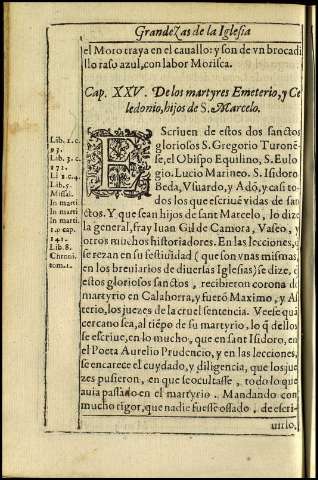 Grandezas de la Iglesia
el Moro traya en el cauallo: y son de vn brocadi
llo raso azul, con labor Morisca.
Cap. XXV. De los martyres Emeterio, y Ce
ledonio, hijos de S. Marcelo.
EScriuen de estos dos sanctos
gloriosos S. Gregorio Turonē
se, el Obispo Equilino, S. Eulo
gio. Lucio Marineo. S. Isidoro
Beda, Vsuardo, y Adó, y casi to
dos los que escriuē vidas de san
ctos. Y que sean hijos de sant Marcelo, lo dize
la general, fray Iuan Gil de Camora, Vaseo, y
otros muchos historiadores. En las lecciones, q̄
se rezan en su festiuidad (que son vnas mismas,
en los breuiarios de diuersas Iglesias) se dize, q̄
estos gloriosos sanctos, recibieron corona de
martyrio en Calahorra, y fueró Maximo, y As
terio, los juezes de la cruel sentencia. Veese quā
cercano sea, al tiēpo de su martyrio, lo q̄ dellos
se escriue, en lo mucho, que en sant Isidoro, en
el Poeta Aurelio Prudencio, y en las lecciones,
se encarece el cuydado, y diligencia, que los jue
zes pusieron, en que se ocultasse, todo lo que
auia passado en el martyrio. Mandando con
mucho rigor, que nadie fuesse osado, de escri-
uirlo,
Lib. 1. c.
93.
Lib. 3. c.
172.
Li 2. c. 4.
Lib. 5.
Missal.
In marti.
In marti.
In marti.
1. p cap.
141.
Lib. 8.
Chroni.
tom. 1.